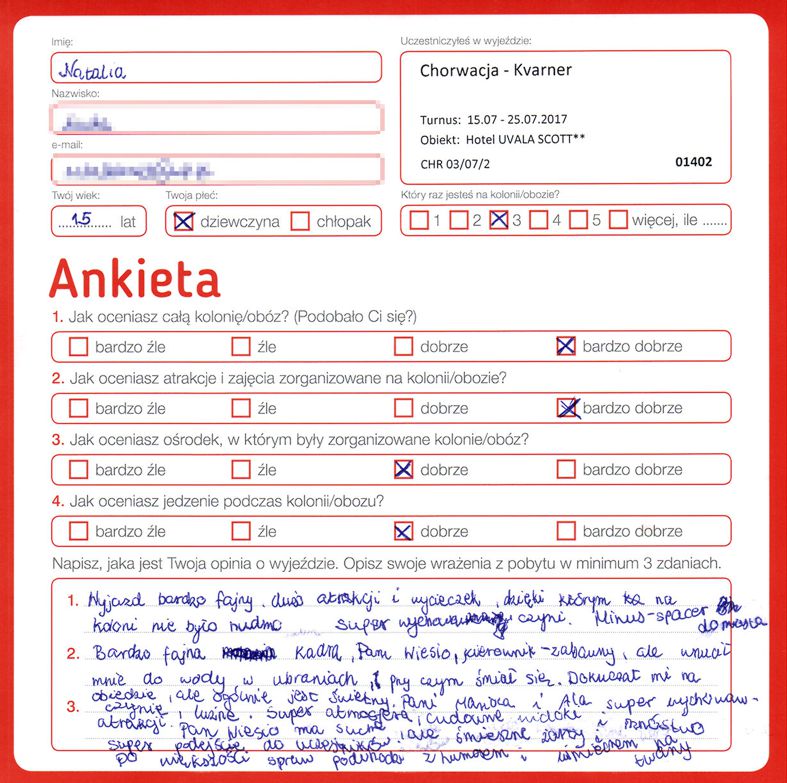 Imię:
Uczestniczyłeś w wyjeździe:
Natalia
Chorwacja - Kvarner
Nazwisko:
Turnus: 15.07 - 25.07.2017
Obiekt: Hotel UVALA SCOTT**
e-mail:
CHR 03/07/2 01402
Twój wiek: Twoja płeć: Który raz jesteś na kolonii/obozie?
15 lat dziewczyna chłopak 1 2 3 4 5 więcej, ile .......
Ankieta
1. Jak oceniasz całą kolonię/obóz? (Podobało Ci się?)
bardzo źle źle dobrze bardzo dobrze
2. Jak oceniasz atrakcje i zajęcia zorganizowane na kolonii/obozie?
bardzo źle źle dobrze bardzo dobrze
3. Jak oceniasz ośrodek, w którym były zorganizowane kolonie/obóz?
bardzo źle źle dobrze bardzo dobrze
4. Jak oceniasz jedzenie podczas kolonii/obozu?
bardzo źle źle dobrze bardzo dobrze
Napisz, jaka jest Twoja opinia o wyjeździe. Opisz swoje wrażenia z pobytu w minimum 3 zdaniach.
1. Wyjazd bardzo fajny, dużo atrakcji i wycieczek, dzięki którym na
koloni nie było nudno super czynni. Minus-spacer
do miasta
2. Bardzo fajna kadra, Pan Wiesio, kierownik-zabawny, ale wrzucał
mnie do wody w ubraniach, przy czym śmiał się. Dokuczał mi na
obiedzie, ale ogólnie jest świetny. Pani Monika i Ala super wychowaw-
3. czynie i luźne. Super atmosfera, cudowne widoki i mnóstwo
atrakcji. Pan Wiesio ma suche, ale śmieszne żarty i
super podejście do uczestników,
Do większości spraw podchodzi z humorem i uśmiechem na
twarzy